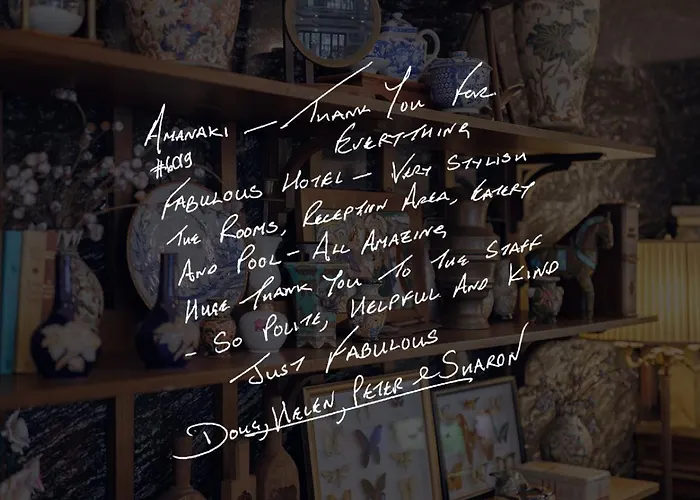 AMANAKI — THANK YOU FOR
#6019 EVERYTHING
FABULOUS HOTEL — VERY STYLISH
THE ROOMS, RECEPTION AREA, EATERY
AND POOL — ALL AMAZING
HUGE THANK YOU TO THE STAFF
- SO POLITE, HELPFUL AND KIND
JUST FABULOUS
DOUG, HELEN, PETER & SHARON